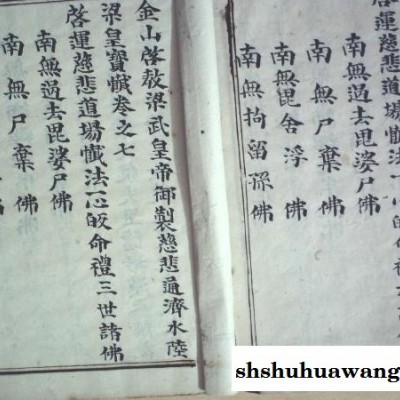 運慈悲道場懺法一心皈命禮三
南無過去毘婆尸佛
南無尸棄佛
南無毘舍浮佛
南無拘留孫佛
金山啓教梁武皇帝御製慈悲通濟水陸
梁皇寶懺卷之七
啓運慈悲道場懺法一心皈命禮三世諸佛
南無過去毘婆尸佛
南無尸棄佛
shshuhuawang